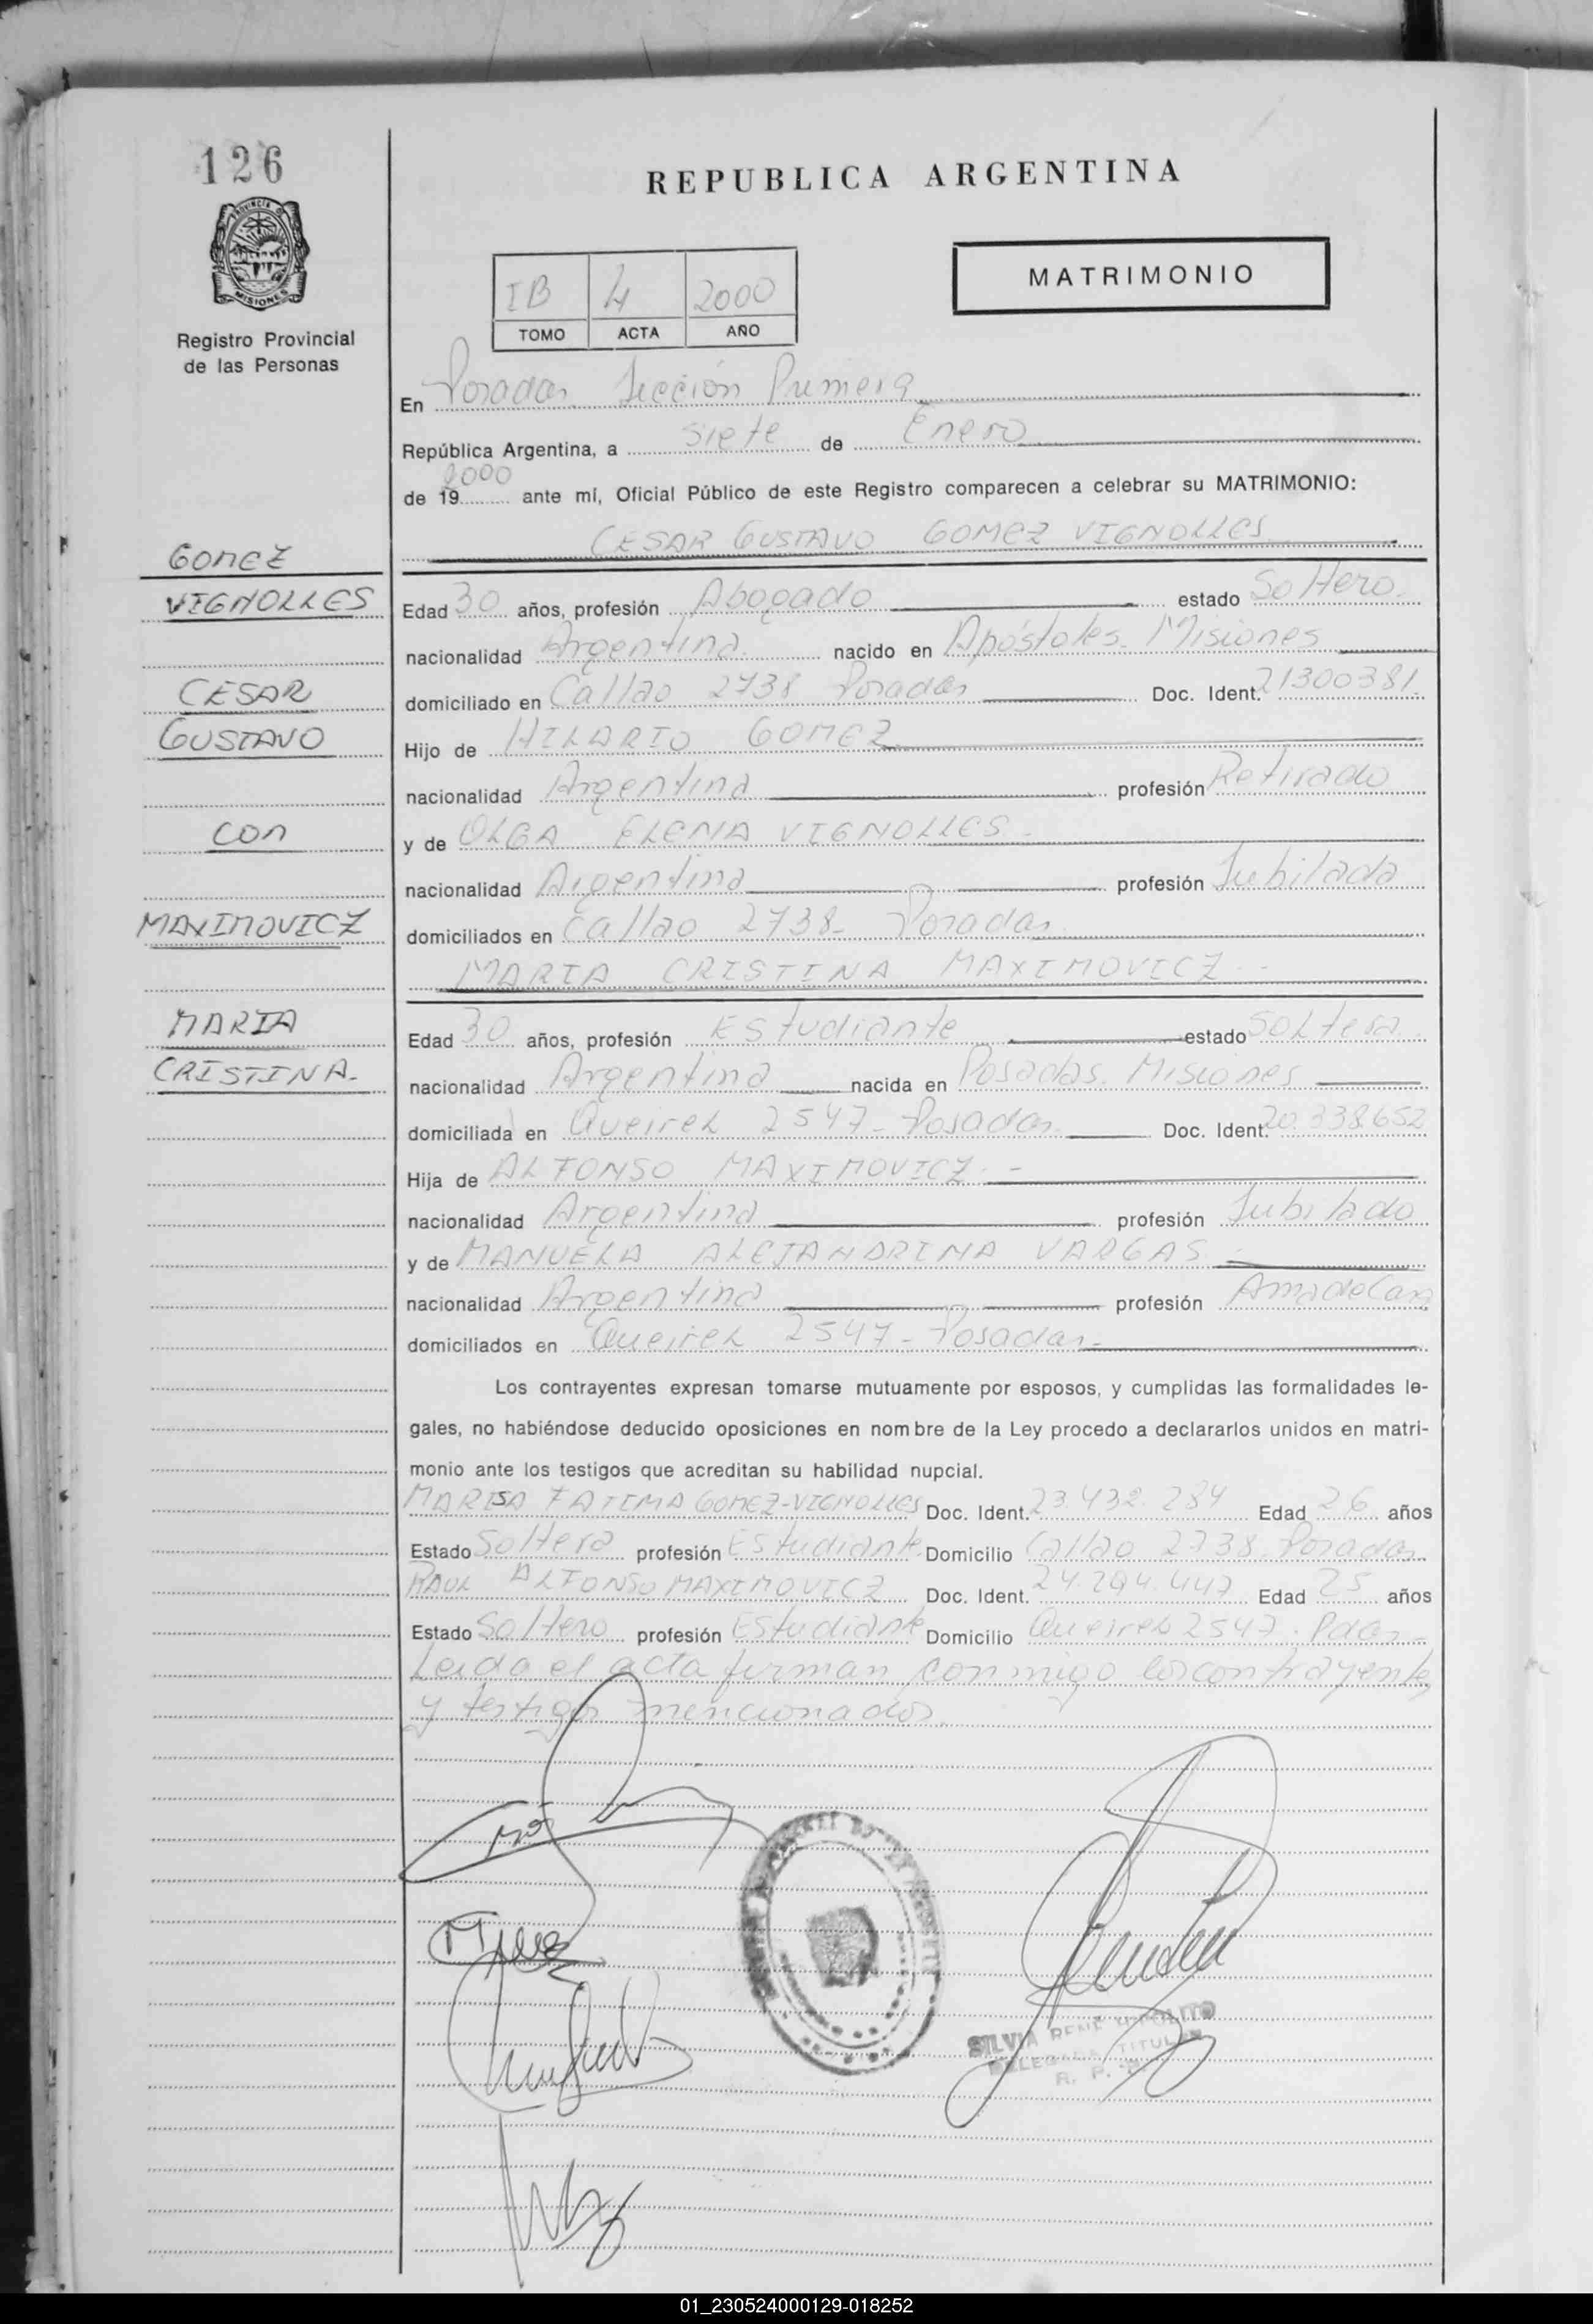 126
REPUBLICA ARGENTINA
PROVINCIA DE
MISIONES
Registro Provincial
de las Personas
IB 4 2000
TOMO ACTA AÑO
MATRIMONIO
En Posadas Sección Primera
República Argentina, a siete de Enero
de 19 2000 ante mí, Oficial Público de este Registro comparecen a celebrar su MATRIMONIO:
CESAR GUSTAVO GOMEZ VIGNOLLES
GOMEZ
VIGNOLLES
CESAR
GUSTAVO
con
MAXIMOVICZ
MARIA
CRISTINA.
Edad 30 años, profesión Abogado estado Soltero.
nacionalidad Argentina. nacido en Apóstoles. Misiones
domiciliado en Callao 2738 Posadas Doc. Ident. 21300381
Hijo de HILARIO GOMEZ
nacionalidad Argentina profesión Retirado
y de OLGA ELENA VIGNOLLES.
nacionalidad Argentina profesión Jubilada
domiciliados en Callao 2738- Posadas
MARIA CRISTINA MAXIMOVICZ -
Edad 30 años, profesión Estudiante estado Soltera
nacionalidad Argentina nacida en Posadas. Misiones
domiciliada en Queirel 2547- Posadas Doc. Ident. 20.338652
Hija de ALFONSO MAXIMOVICZ. -
nacionalidad Argentina profesión Jubilado
y de MANUELA ALEJANDRINA VARGAS -
nacionalidad Argentina profesión Ama de Casa
domiciliados en Queirel 2547- Posadas-
Los contrayentes expresan tomarse mutuamente por esposos, y cumplidas las formalidades le-
gales, no habiéndose deducido oposiciones en nombre de la Ley procedo a declararlos unidos en matri-
monio ante los testigos que acreditan su habilidad nupcial.
MARISA FATIMA GOMEZ-VIGNOLLES Doc. Ident. 23.432.284 Edad 26 años
Estado Soltera profesión Estudiante Domicilio Callao 2738. Posadas
RAUL ALFONSO MAXIMOVICZ Doc. Ident. 24.294.447 Edad 25 años
Estado Soltero profesión Estudiante Domicilio Queirel 2547. Pdas-
Leida el acta firman conmigo los contrayentes
y testigos mencionados.
SILVIA RENE
DELEGADA TITULAR
R. P.
01_230524000129-018252